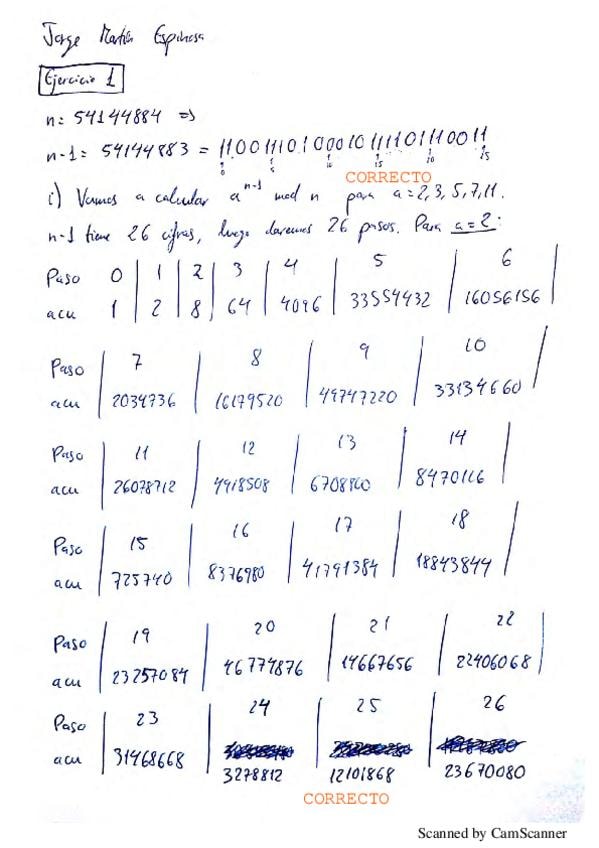 Jorge Martín Espinosa
Ejercicio 1
n = 54144884 ⇒
n-1 = 54144883 = 11001110100010111101110011
0 5 10 15 20 25
CORRECTO
i) Vamos a calcular a^(n-1) mod n para a = 2, 3, 5, 7, 11.
n-1 tiene 26 cifras, luego daremos 26 pasos. Para a = 2:
Paso 0 | 1 | 2 | 3 | 4 | 5 | 6
acu 1 | 2 | 8 | 64 | 4096 | 33554432 | 16056156 |
Paso | 7 | 8 | 9 | 10 |
acu | 2034736 | 16179520 | 49747220 | 33134660
Paso | 11 | 12 | 13 | 14 |
acu | 26078712 | 4918508 | 6708800 | 8470116
Paso | 15 | 16 | 17 | 18 |
acu | 725740 | 8376980 | 41791384 | 18843844
Paso | 19 | 20 | 21 | 22 |
acu | 23257084 | 46774876 | 14667656 | 22406068
Paso | 23 | 24 | 25 | 26
acu | 31468668 | 3278812 | 12101868 | 23670080
CORRECTO
Scanned by CamScanner